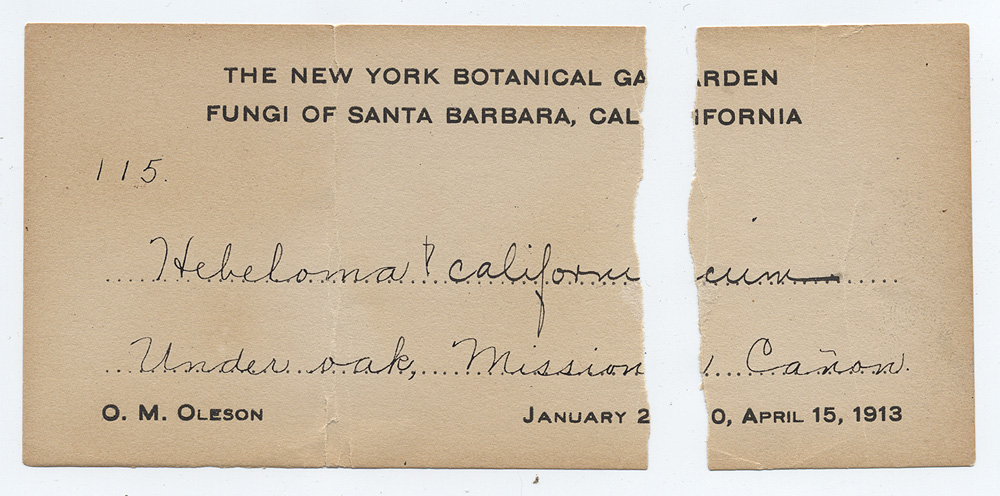 THE NEW YORK BOTANICAL GARDEN
FUNGI OF SANTA BARBARA, CALIFORNIA
115.
Hebeloma ? californicum
Under oak, Mission Cañon.
O. M. OLESON JANUARY 20, APRIL 15, 1913